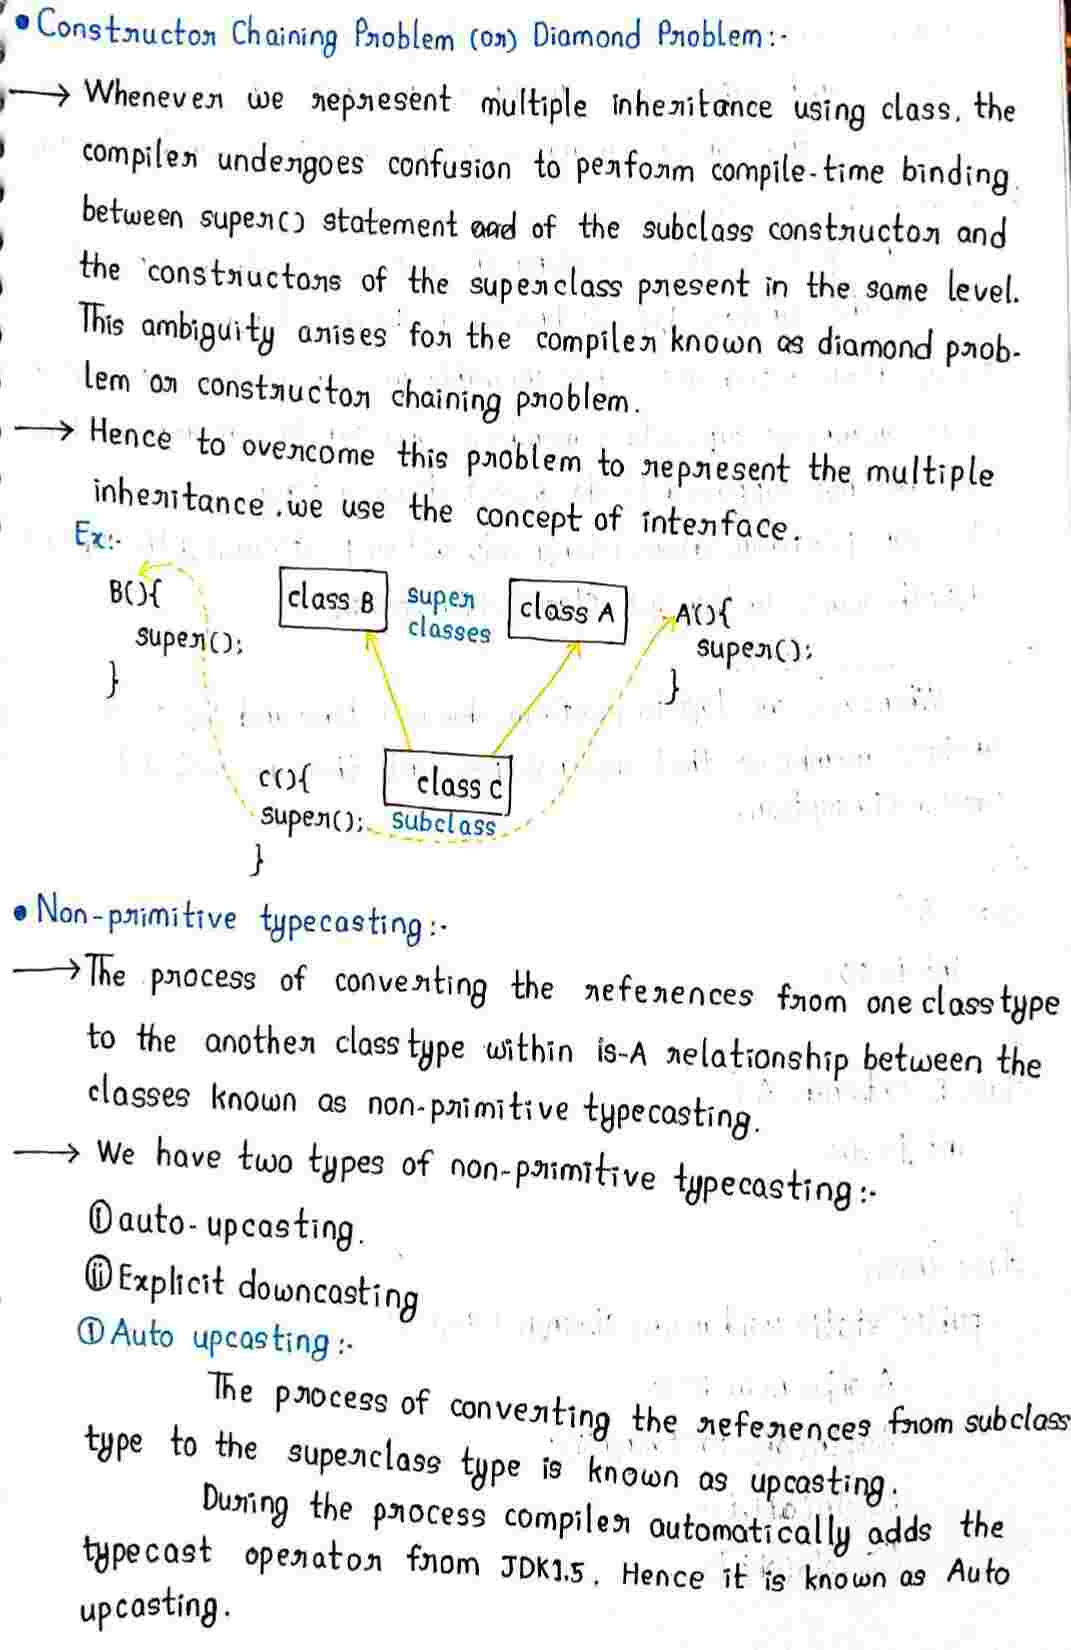 • Constructor Chaining Problem (or) Diamond Problem:-
→ Whenever we represent multiple inheritance using class, the
compiler undergoes confusion to perform compile-time binding
between super() statement and of the subclass constructor and
the constructors of the superclass present in the same level.
This ambiguity arises for the compiler known as diamond prob-
lem or constructor chaining problem.
→ Hence to overcome this problem to represent the multiple
inheritance, we use the concept of interface.
Ex:-
B(){
super();
}
class B
super
classes
class A
A(){
super();
}
C(){
super();
}
class C
subclass
• Non-primitive typecasting:-
→ The process of converting the references from one class type
to the another class type within is-A relationship between the
classes known as non-primitive typecasting.
→ We have two types of non-primitive typecasting:-
ⓘ auto-upcasting.
ⓘⓘ Explicit downcasting
① Auto upcasting:-
The process of converting the references from subclass
type to the superclass type is known as upcasting.
During the process compiler automatically adds the
typecast operator from JDK1.5. Hence it is known as Auto
upcasting.